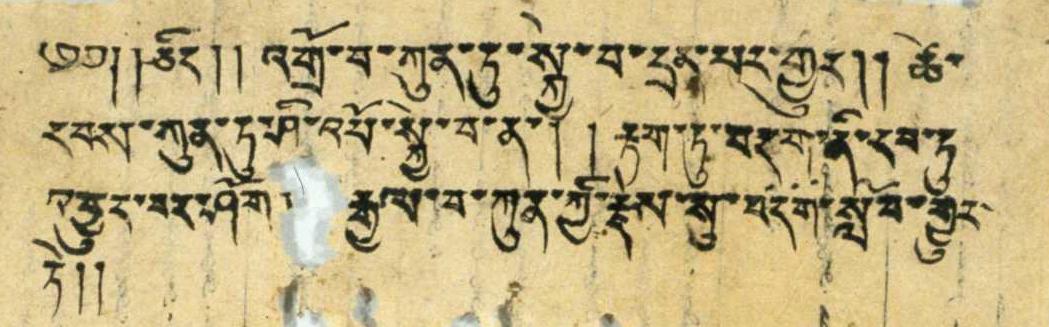 ༄༅། །ཅིང་། ། འགྲོ་བ་ཀུན་ཏུ་སྐྱེ་བ་དྲན་པར་གྱུར། ། ཚེ་
རབས་ཀུན་ཏུ་ཤི་འཕོ་སྐྱེ་བ་ན་། ། རྟག་ཏུ་བདག་ནི་རབ་ཏུ་
འབྱུང་བར་ཤོག ། རྒྱལ་བ་ཀུན་ཀྱི་རྗེས་སུ་བདག་སློབ་གྱུར་
ཏེ།།